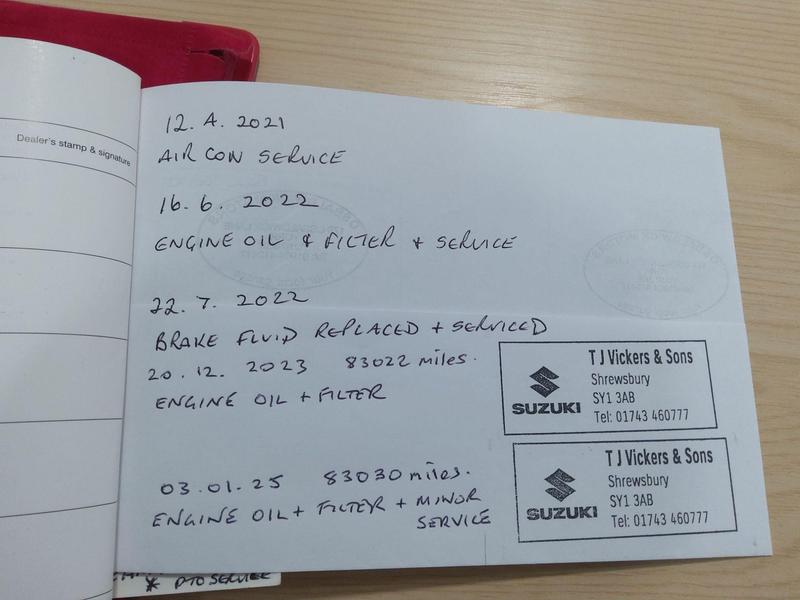 Dealer's stamp & signature
12. 4. 2021
AIR CON SERVICE
16. 6. 2022
ENGINE OIL & FILTER + SERVICE
22. 7. 2022
BRAKE FLUID REPLACED + SERVICED
20. 12. 2023 83022 miles.
ENGINE OIL + FILTER
SUZUKI
T J Vickers & Sons
Shrewsbury
SY1 3AB
Tel: 01743 460777
03.01.25 83030 miles.
ENGINE OIL + FILTER + MINOR
SERVICE
SUZUKI
T J Vickers & Sons
Shrewsbury
SY1 3AB
Tel: 01743 460777
* PTO SERVICE